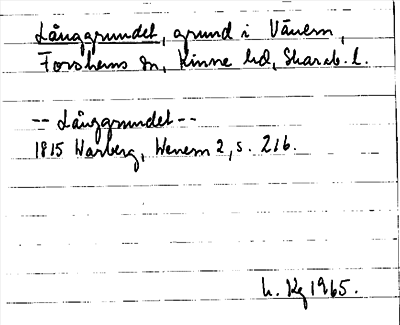 Långgrundet, grund i Vänern,
Forshems sn, Kinne hd, Skarab. l.
-- Långgrundet --
1815 Warberg, Wenern 2, s. 216.
h. Kg 1965.